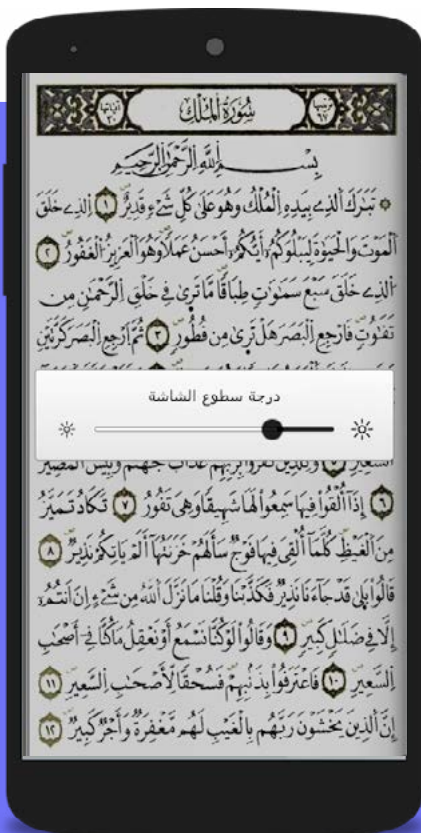 ترتيبها ٦٧
سُورَةُ الْمُلْكِ
آياتها ٣٠
بِسْمِ اِللَّهِ اِلرَّحْمَٰنِ اِلرَّحِيمِ
تَبَٰرَكَ اَلذِے بِيَدِهِ اِلْمُلْكُ وَهُوَ عَلَىٰ كُلِّ شَےْءٖ قَدِيرٌ ١ اِلذِے خَلَقَ
اَلْمَوْتَ وَالْحَيَوٰةَ لِيَبْلُوَكُمُۥٓ أَيُّكُمُۥٓ أَحْسَنُ عَمَلاٗ وَهُوَ اَلْعَزِيزُ اُلْغَفُورُ ٢
اُلذِے خَلَقَ سَبْعَ سَمَٰوَٰتٖ طِبَاقاٗ مَّا تَرِىٰ فِے خَلْقِ اِلرَّحْمَٰنِ مِن
تَفَٰوُتٖ فَارْجِعِ اِلْبَصَرَ هَلْ تَرِىٰ مِن فُطُورٖ ٣ ثُمَّ اَرْجِعِ اِلْبَصَرَ كَرَّتَيْنِ
درجة سطوع الشاشة
اَلسَّعِيرِ وَلِلذِينَ كَفَرُواْ بِرَبِّهِمْ عَذَابُ جَهَنَّمَ وَبِيسَ اَلْمَصِيرُ
٦ إِذَآ أُلْقُواْ فِيهَا سَمِعُواْ لَهَا شَهِيقاٗ وَهِىَ تَفُورُ ٧ تَكَادُ تَمَيَّزُ
مِنَ اَلْغَيْظِ كُلَّمَآ أُلْقِىَ فِيهَا فَوْجٞ سَأَلَهُمْ خَزَنَتُهَآ أَلَمْ يَاتِكُمْ نَذِيرٞ ٨
قَالُواْ بَلَىٰ قَدْ جَآءَنَا نَذِيرٞ فَكَذَّبْنَا وَقُلْنَا مَا نَزَّلَ اَللَّهُ مِن شَےْءٍ اِنَ اَنتُمُۥٓ
إِلَّا فِے ضَلَٰلٖ كَبِيرٖ ٩ وَقَالُواْ لَوْ كُنَّا نَسْمَعُ أَوْ نَعْقِلُ مَا كُنَّا فِےٓ أَصْحَٰبِ
اِلسَّعِيرِ ١٠ فَاعْتَرَفُواْ بِذَنۢبِهِمْ فَسُحْقاٗ لِّأَصْحَٰبِ اِلسَّعِيرِ ١١
إِنَّ اَلذِينَ يَخْشَوْنَ رَبَّهُم بِالْغَيْبِ لَهُم مَّغْفِرَةٞ وَأَجْرٞ كَبِيرٞ ١٢